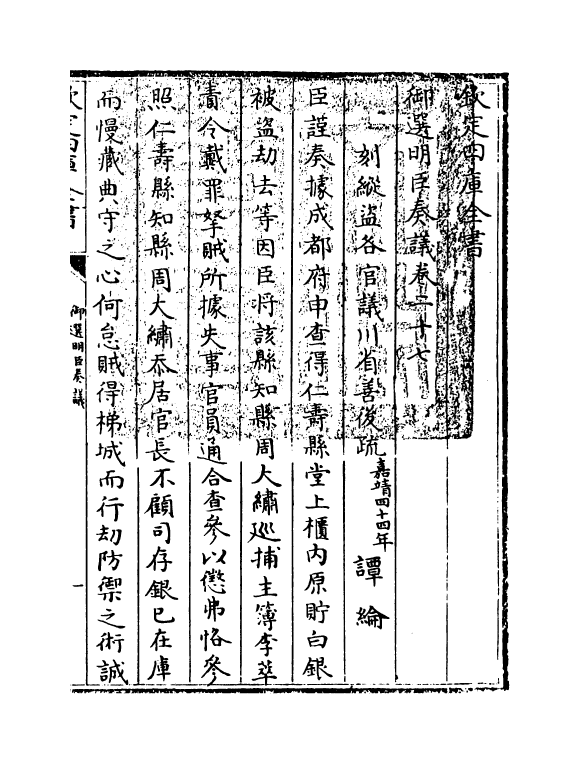 欽定四庫全書
御選明臣奏議卷二十七
刻縱盜各官議川省善後疏嘉靖四十四年 譚綸
臣謹奏據成都府申查得仁壽縣堂上櫃內原貯白銀
被盜劫去等因臣將該縣知縣周大繡巡捕主簿李萃
責令戴罪拏賊所據失事官員通合查參以懲弗恪參
照仁壽縣知縣周大繡忝居官長不顧司存銀已在庫
而慢藏典守之心何怠賊得梯城而行刼防禦之術誠
欽定四庫全書
御選明臣奏議
一